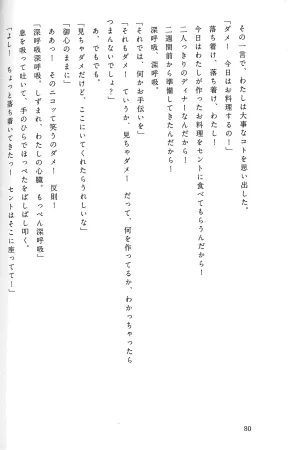 その一言で、わたしは大事なコトを思い出した。
「ダメ！　今日はお料理するの！」
落ち着け、落ち着け、わたし！
今日はわたしが作ったお料理をセントに食べてもらうんだから！
二人っきりのディナーなんだから！
二週間前から準備してきたんだから！
深呼吸、深呼吸。
「それでは、何かお手伝いを」
「それもダメ！　ていうか、見ちゃダメ！　だって、何を作ってるか、わかっちゃったら
つまんないでしょ？」
あ、でもでも。
「見ちゃダメだけど、ここにいてくれたらうれしいな」
「御心のままに」
ああっ！　そのニコッて笑うのダメ！　反則！
深呼吸深呼吸。しずまれ、わたしの心臓。もっぺん深呼吸
息を吸って吐いて、手のひらでほっぺたをぱしぱし叩く。
「よし！　ちょっと落ち着いてきたっ！　セントはそこに座ってて！」
80